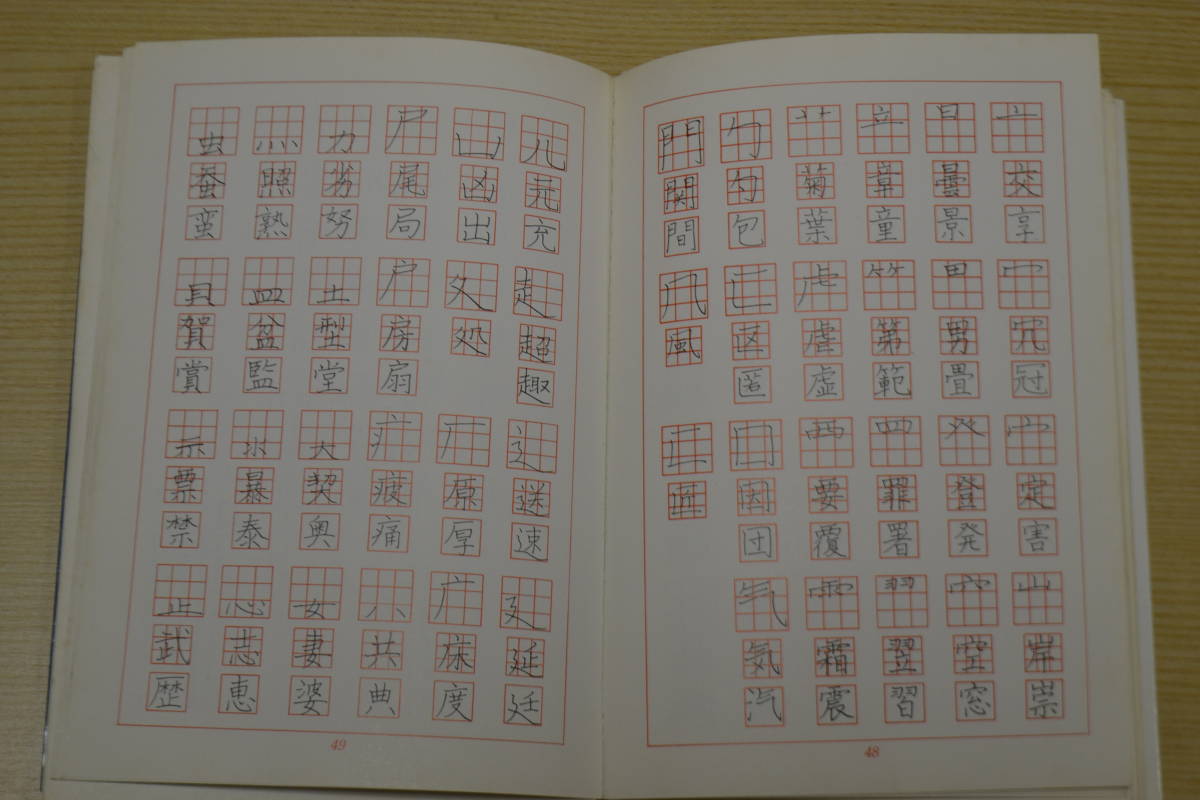 亠交享冖冗冠宀定害山岸崇
日曇景田男畳癶登発穴空窓
立章童竹第範罒罪署羽翌習
艹菊葉虍虐虚覀要覆雨霜震
勹勺包匸区匿囗因団气気汽
門関間几風匚匠
48
儿尭充走超趣辶迷速廴延廷
凵凶出夂処厂原厚广床度
尸尾局戸房扇疒疲痛八共典
力労努土型堂大契奥女妻婆
灬照熟皿盆監氺暴泰心恵
虫蚕蛮貝賀賞示票禁止武歴
49